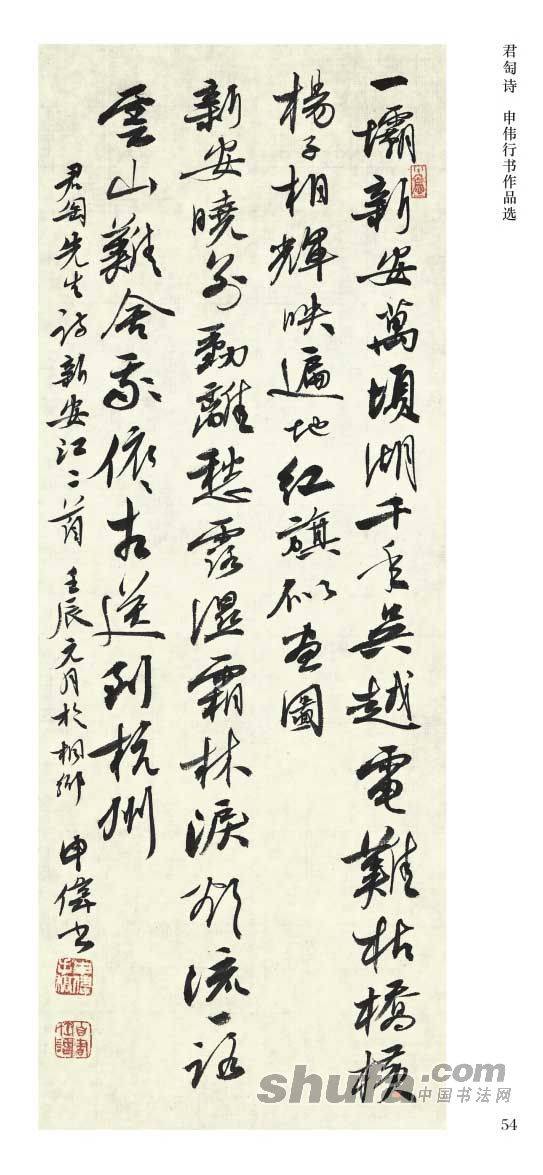 君匋诗 申伟行书作品选
一壩新安萬頃湖千重吳越電難枯橋橫
楊子相輝映遍地红旗似画圖
新安曉別動離愁露湿霜林淚欲流一路
雲山難舍我依依相送到杭州
君匋先生诗新安江二首 壬辰元月於桐鄉 申偉书
shufa.com
中国书法网
54